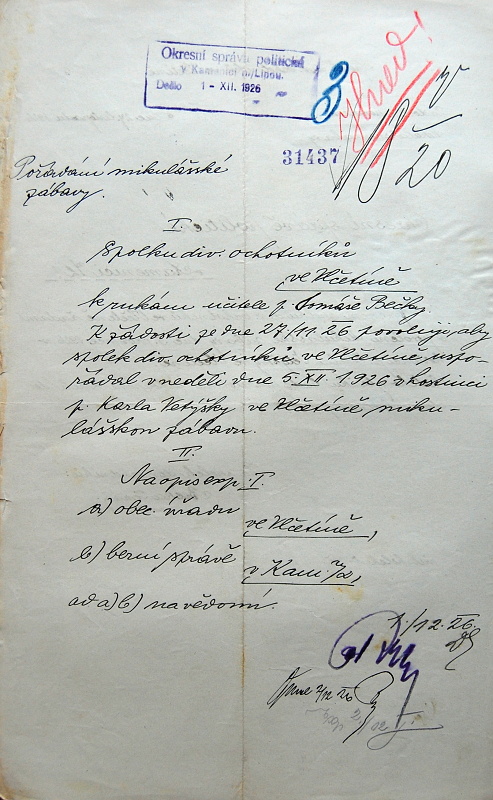 Okresní správa politická
v Kamenici n/Lipou.
Došlo 1 - XII. 1926
3
Ihned!
31437
20
Pořádání mikulášské
zábavy.
I.
Spolku div. ochotníků
ve Včetíně
k rukám učitele p. Tomáše Bečky
K žádosti ze dne 27./11. 26 povoluji, aby
spolek div. ochotníků ve Včetíně, uspo-
řádal v neděli dne 5. XII. 1926 v hostinci
p. Karla Vetýšky ve Včetíně miku-
lášskou zábavu.
II.
Na opis exp. I.
a) obec. úřadu
ve Včetíně,
b) berní správě
v Kam. n/L,
ad a) b) na vědomí.
1./12. 26.
2/12 26